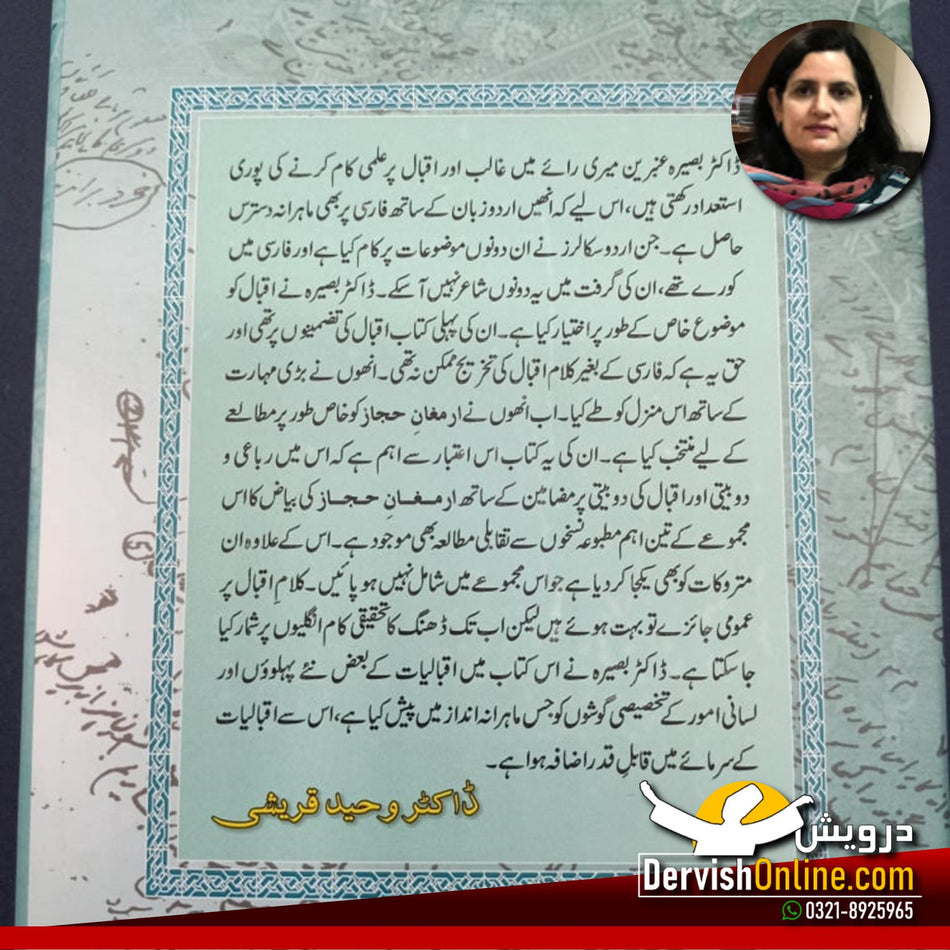 ڈاکٹر بصیرہ عنبرین میری رائے میں غالب اور اقبال پر علمی کام کرنے کی پوری
استعداد رکھتی ہیں، اس لیے کہ انھیں اردو زبان کے ساتھ فارسی پر بھی ماہرانہ دسترس
حاصل ہے۔ جن اردو سکالرز نے ان دونوں موضوعات پر کام کیا ہے اور فارسی میں
کورے تھے، ان کی گرفت میں یہ دونوں شاعر نہیں آسکے۔ ڈاکٹر بصیرہ نے اقبال کو
موضوع خاص کے طور پر اختیار کیا ہے۔ ان کی پہلی کتاب اقبال کی تضمینوں پر تھی اور
حق یہ ہے کہ فارسی کے بغیر کلام اقبال کی تخریج ممکن نہ تھی۔ انھوں نے بڑی مہارت
کے ساتھ اس منزل کو طے کیا۔ اب انھوں نے ارمغانِ حجاز کو خاص طور پر مطالعے
کے لیے منتخب کیا ہے۔ ان کی یہ کتاب اس اعتبار سے اہم ہے کہ اس میں رباعی و
دوبیتی اور اقبال کی دوبیتی پر مضامین کے ساتھ ارمغانِ حجاز کی بیاض کا اس
مجموعے کے تین اہم مطبوعہ نسخوں سے تقابلی مطالعہ بھی موجود ہے۔ اس کے علاوہ ان
متروکات کو بھی یکجا کر دیا ہے جو اس مجموعے میں شامل نہیں ہو پائیں۔ کلامِ اقبال پر
عمومی جائزے تو بہت ہوئے ہیں لیکن اب تک ڈھنگ کا تحقیقی کام انگلیوں پر شمار کیا
جا سکتا ہے۔ ڈاکٹر بصیرہ نے اس کتاب میں اقبالیات کے بعض نئے پہلوؤں اور
لسانی امور کے تخصیصی گوشوں کو جس ماہرانہ انداز میں پیش کیا ہے، اس سے اقبالیات
کے سرمائے میں قابلِ قدر اضافہ ہوا ہے۔
ڈاکٹر وحید قریشی
درویش
DervishOnline.com
0321-8925965